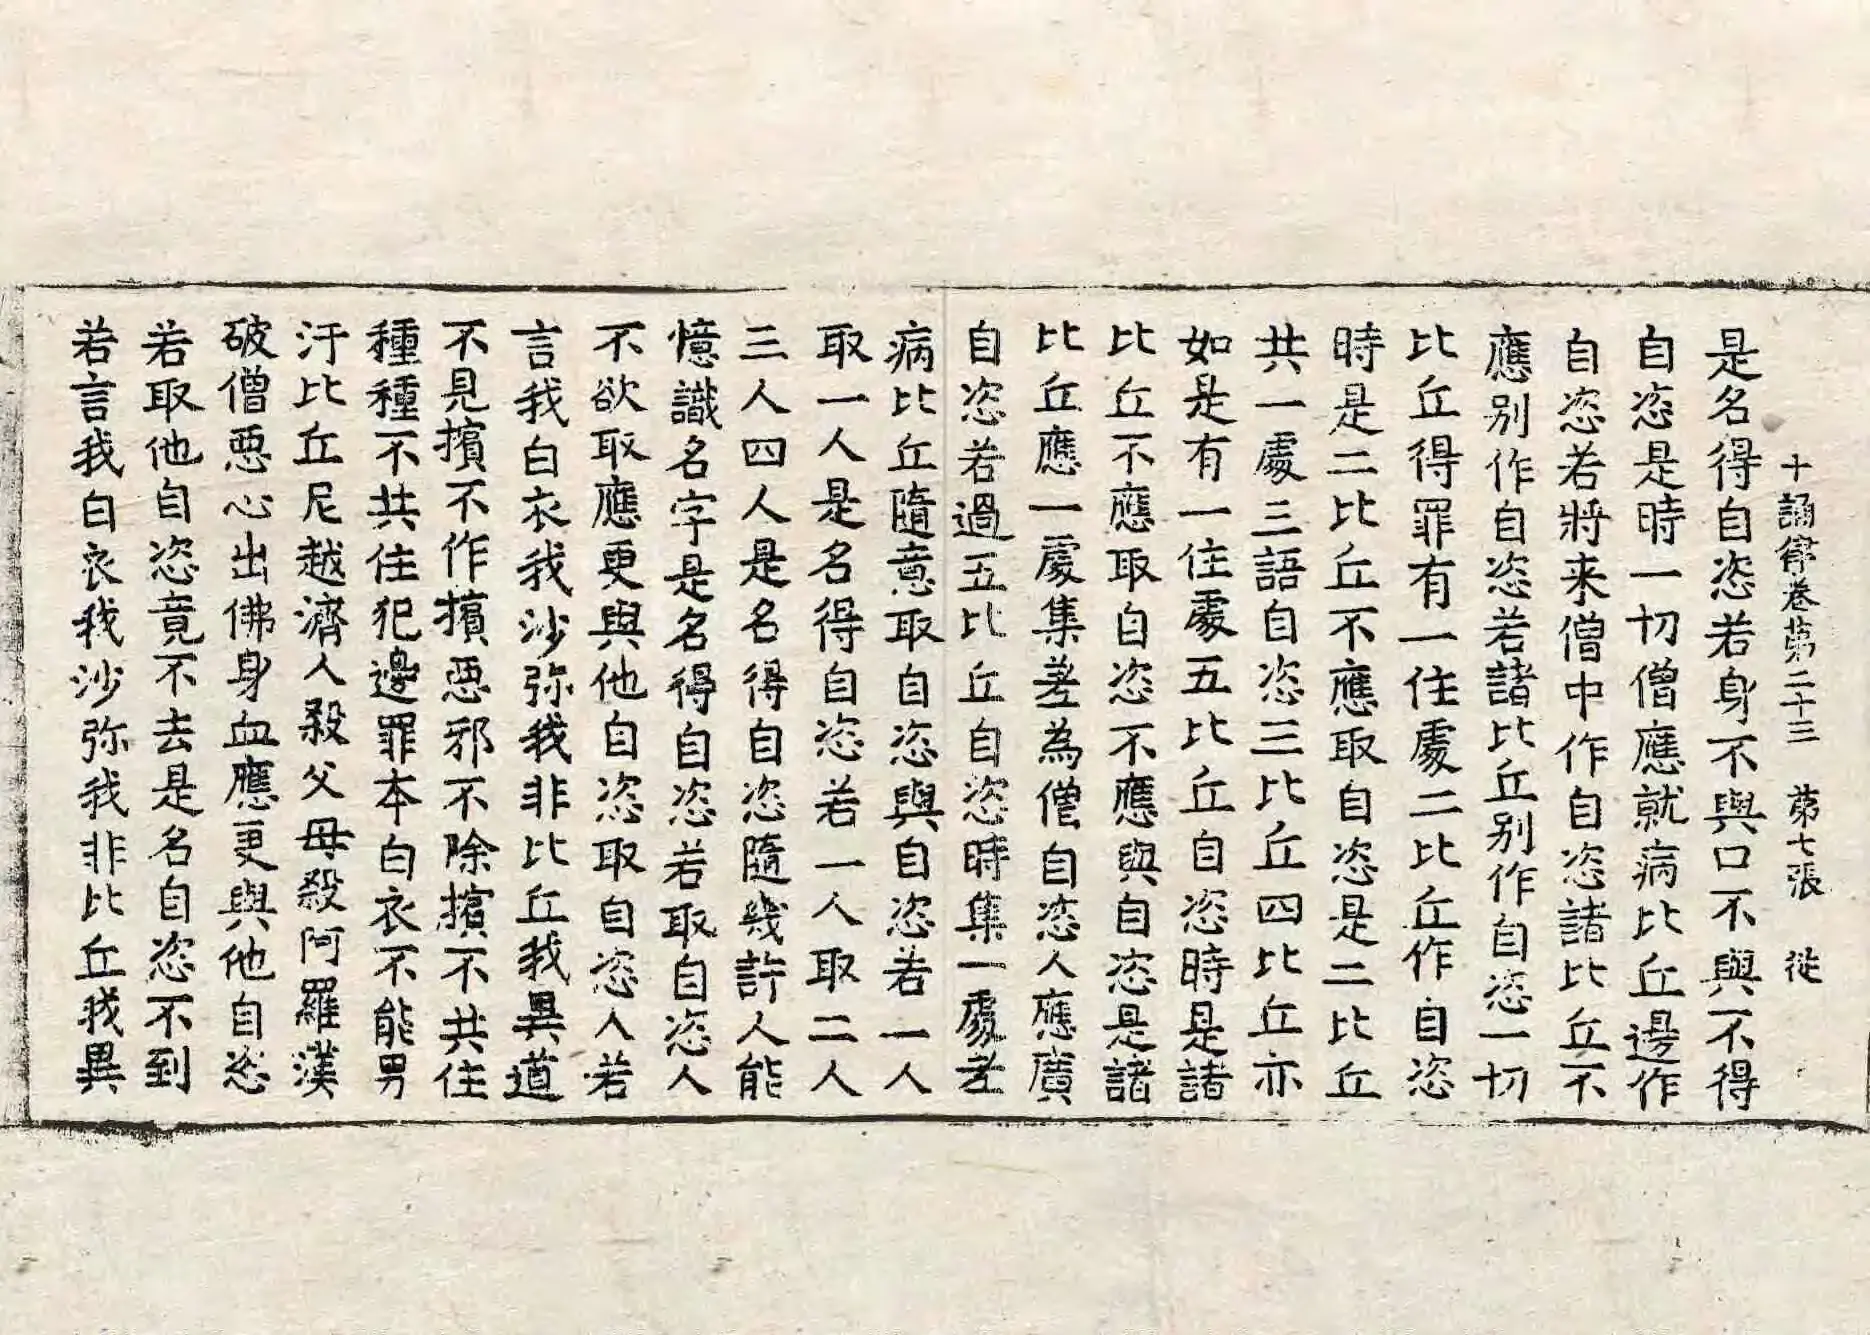 十誦律卷第二十三 第七張 㢠
是名得自恣若身不與口不與不得
自恣是時一切僧應就病比丘邊作
自恣若將来僧中作自恣諸比丘不
應别作自恣若諸比丘别作自恣一切
比丘得罪有一住處二比丘作自恣
時是二比丘不應取自恣是二比丘
共一處三語自恣三比丘四比丘亦
如是有一住處五比丘自恣時是諸
比丘不應取自恣不應與自恣是諸
比丘應一處集差為僧自恣人應廣
自恣若過五比丘自恣時集一處差
病比丘隨意取自恣與自恣若一人
取一人是名得自恣若一人取二人
三人四人是名得自恣隨幾許人能
憶識名字是名得自恣若取自恣人
不欲取應更與他自恣取自恣人若
言我白衣我沙弥我非比丘我異道
不見擯不作擯惡邪不除擯不共住
種種不共住犯邊罪本白衣不能男
汙比丘尼越濟人殺父母殺阿羅漢
破僧惡心出佛身血應更與他自恣
若取他自恣竟不去是名自恣不到
若言我白衣我沙弥我非比丘我異